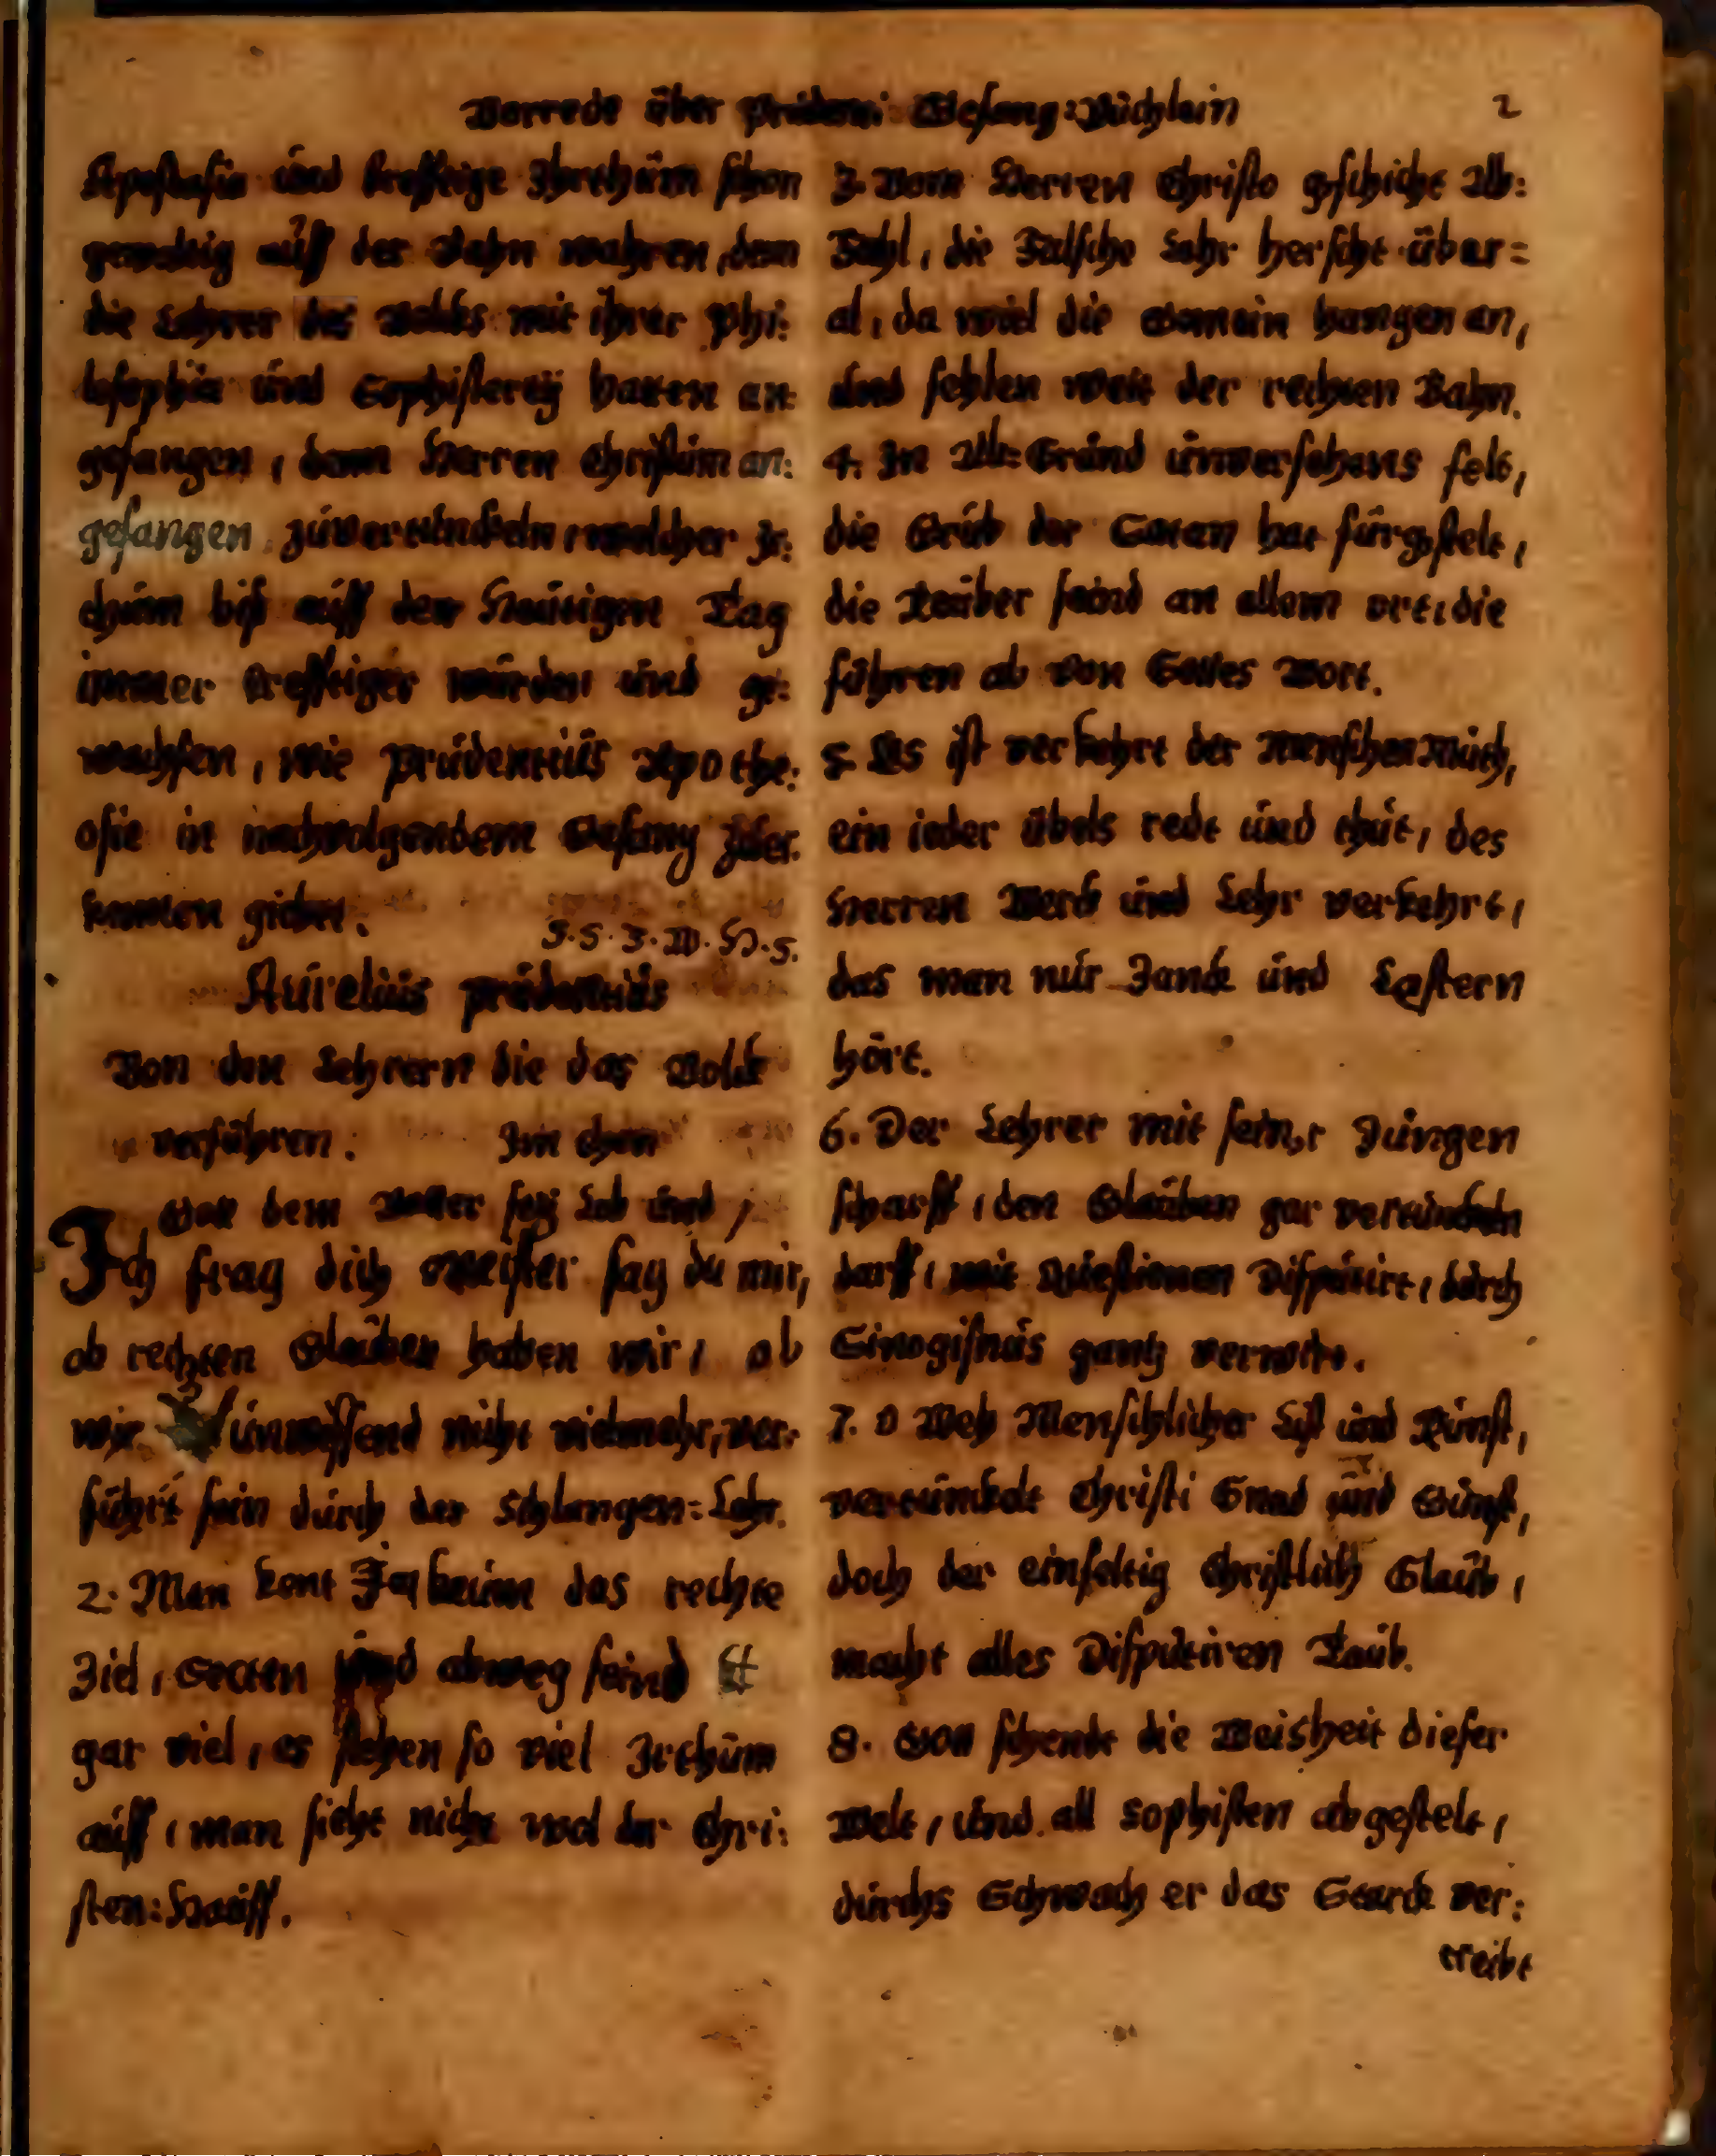 Vorrede über Prüdenti Gesang:Büchlein 2
Apostasia und krefftige Ihrthüm schon
gewaltig auff der Bahn wahren, dem
die Lehrer des Volcks mit ihrer Phi:
losophia und Sophisterey hatten an:
gefangen, denn Herren Christum an:
gefangen zuvertunckeln, welcher Ir:
thüm biß auff den Heutigen Tag
immer krefftiger würden und ge:
wachsen, wie Prudentius Apothe:
osie in nachvolgendem Gesang zuer:
kennen giebet.
J. S. J. W. H. S.
Aurelius Prudentius
Von den Lehrern die das Volck
verführen. Im thon
Gott dem Vatter sey Lob und
Ich frag dich Meister sag du mir,
ob rechten Glauben haben wir, ob
wir unwissend nicht vielmehr, ver:
führt sein durch der Schlangen:Lehr.
2. Man kent Ja kaum das rechte
Ziel, Secten und abweg seind
gar viel, es stehen so viel Irthum
auff, man sieht nicht wol der Chri:
sten:Hauff.
3. Vom Herren Christo geschicht Ab:
Fahl, die Falsche Lehr herscht über=
al, da wiel die Gemein hangen an,
und fehlen weit der rechten Bahn.
4. In Ab:Grund unversehens felt,
die Grub der Satan hat fürgstelt,
die Räuber seind an allem ort, die
führen ab von Gottes Wort.
5. Es ist verkehrt der Menschen Muth,
ein ieder übels redt und thut, des
Herren Werck und Lehr verkehrt,
das man nur Zanck und Lästern
hört.
6. Der Lehrer mit seiner Zungen
scharff, den Glauben gar vertunckeln
darff, mit Questionen Disputirt, durch
Silogismus gantz verwirt.
7. O Weh Menschlicher List und Kunst,
vertunckelt Christi Gnad und Gunst,
doch der einfeltig Christlich Glaub,
macht alles Disputiren Taub.
8. Gott schendt die Weisheit dieser
Welt, und all Sophisten abgestelt,
durchs Schwach er das Starck ver:
treibt